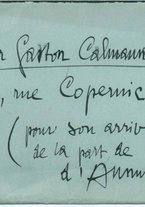 r Gaston Calmann
, rue Copernic
(pour son arriv
de la part de
d'Annun